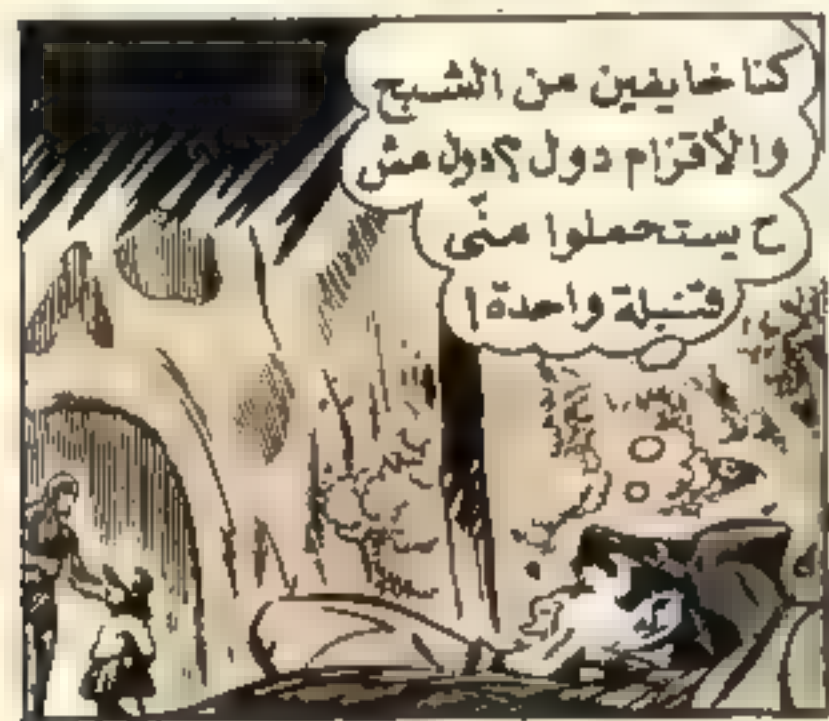 كنا خايفين من الشبح
والأقزام دول؟ دول مش
ح يستحملوا منّى
قنبلة واحدة!